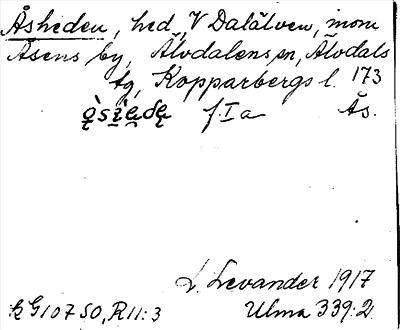 Åsheden, hed, V Dalälven, inom
Åsens by, Älvdalens sn, Älvdals
tg, Kopparbergs l. 173
f. I a Ås.
L. Levander 1917
G107 SO, R11:3 Ulma 339:2.